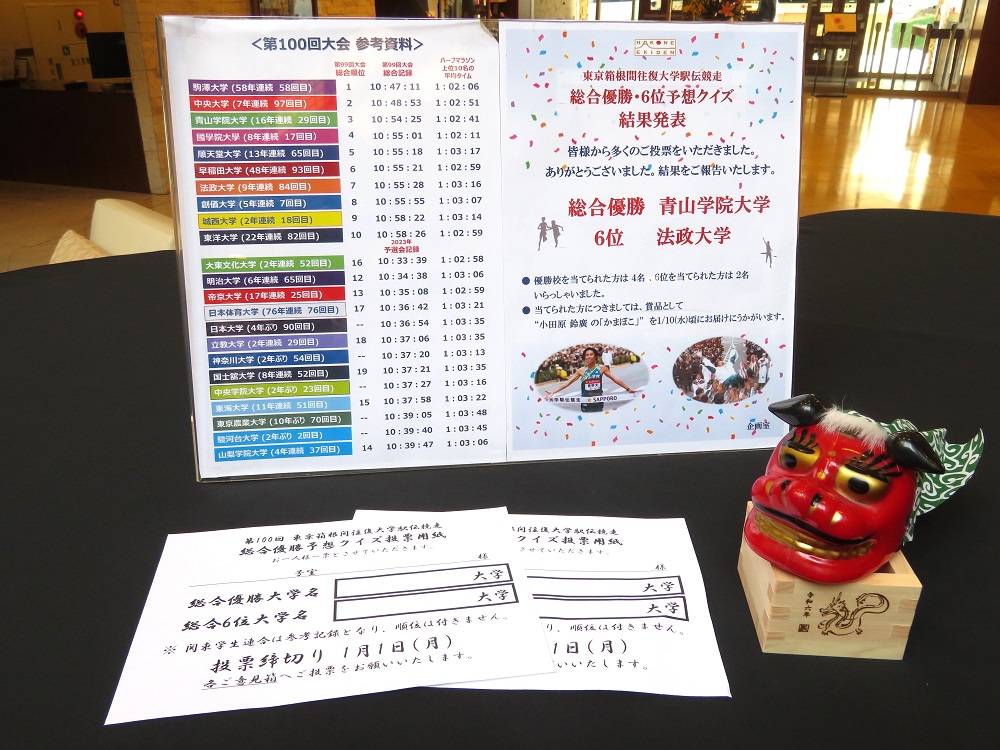 <第100回大会 参考資料>
第99回大会 総合順位 第99回大会 総合記録 ハーフマラソン 上位10名の 平均タイム
駒澤大学 (58年連続 58回目) 1 10:47:11 1:02:06
中央大学 (7年連続 97回目) 2 10:48:53 1:02:51
青山学院大学 (16年連続 29回目) 3 10:54:25 1:02:41
國學院大學 (8年連続 17回目) 4 10:55:01 1:02:11
順天堂大学 (13年連続 65回目) 5 10:55:18 1:03:17
早稲田大学 (48年連続 93回目) 6 10:55:21 1:02:59
法政大学 (9年連続 84回目) 7 10:55:28 1:03:16
創価大学 (5年連続 7回目) 8 10:55:55 1:03:07
城西大学 (2年連続 18回目) 9 10:58:22 1:03:14
東洋大学 (22年連続 82回目) 10 10:58:26 1:02:59
2023年 予選会記録
大東文化大学 (2年連続 52回目) 16 10:33:39 1:02:58
明治大学 (6年連続 65回目) 12 10:34:38 1:03:06
帝京大学 (17年連続 25回目) 13 10:35:08 1:02:59
日本体育大学 (76年連続 76回目) 17 10:36:42 1:03:21
日本大学 (4年ぶり 90回目) -- 10:36:54 1:03:35
立教大学 (2年連続 29回目) 18 10:37:06 1:03:35
神奈川大学 (2年ぶり 54回目) -- 10:37:20 1:03:13
国士舘大学 (8年連続 52回目) 19 10:37:21 1:03:35
中央学院大学 (2年ぶり 23回目) -- 10:37:27 1:03:16
東海大学 (11年連続 51回目) 15 10:37:58 1:03:22
東京農業大学 (10年ぶり 70回目) -- 10:39:05 1:03:48
駿河台大学 (2年ぶり 2回目) -- 10:39:40 1:03:45
山梨学院大学 (4年連続 37回目) 14 10:39:47 1:03:06
HAKONE
EKIDEN
東京箱根間往復大学駅伝競走
総合優勝・6位予想クイズ
結果発表
皆様から多くのご投票をいただきました。
ありがとうございました。結果をご報告いたします。
総合優勝 青山学院大学
6位 法政大学
● 優勝校を当てられた方は4名、6位を当てられた方は2名
いらっしゃいました。
● 当てられた方につきましては、賞品として
“小田原 鈴廣 の「かまぼこ」” を1/10(水)頃にお届けにうかがいます。
SAPPORO
企画室
第100回 東京箱根間往復大学駅伝競走
総合優勝予想クイズ投票用紙
お一人様一票とさせていただきます。
号室 様
総合優勝大学名 大学
総合6位大学名 大学
※ 関東学生連合は参考記録となり、順位は付きません。
投票締切り 1月1日(月)
各ご意見箱へご投票をお願いいたします。
往復大学駅伝競走
クイズ投票用紙
させていただきます。
様
大学
大学
なり、順位は付きません。
1日(月)
お願いいたします。
令和六年